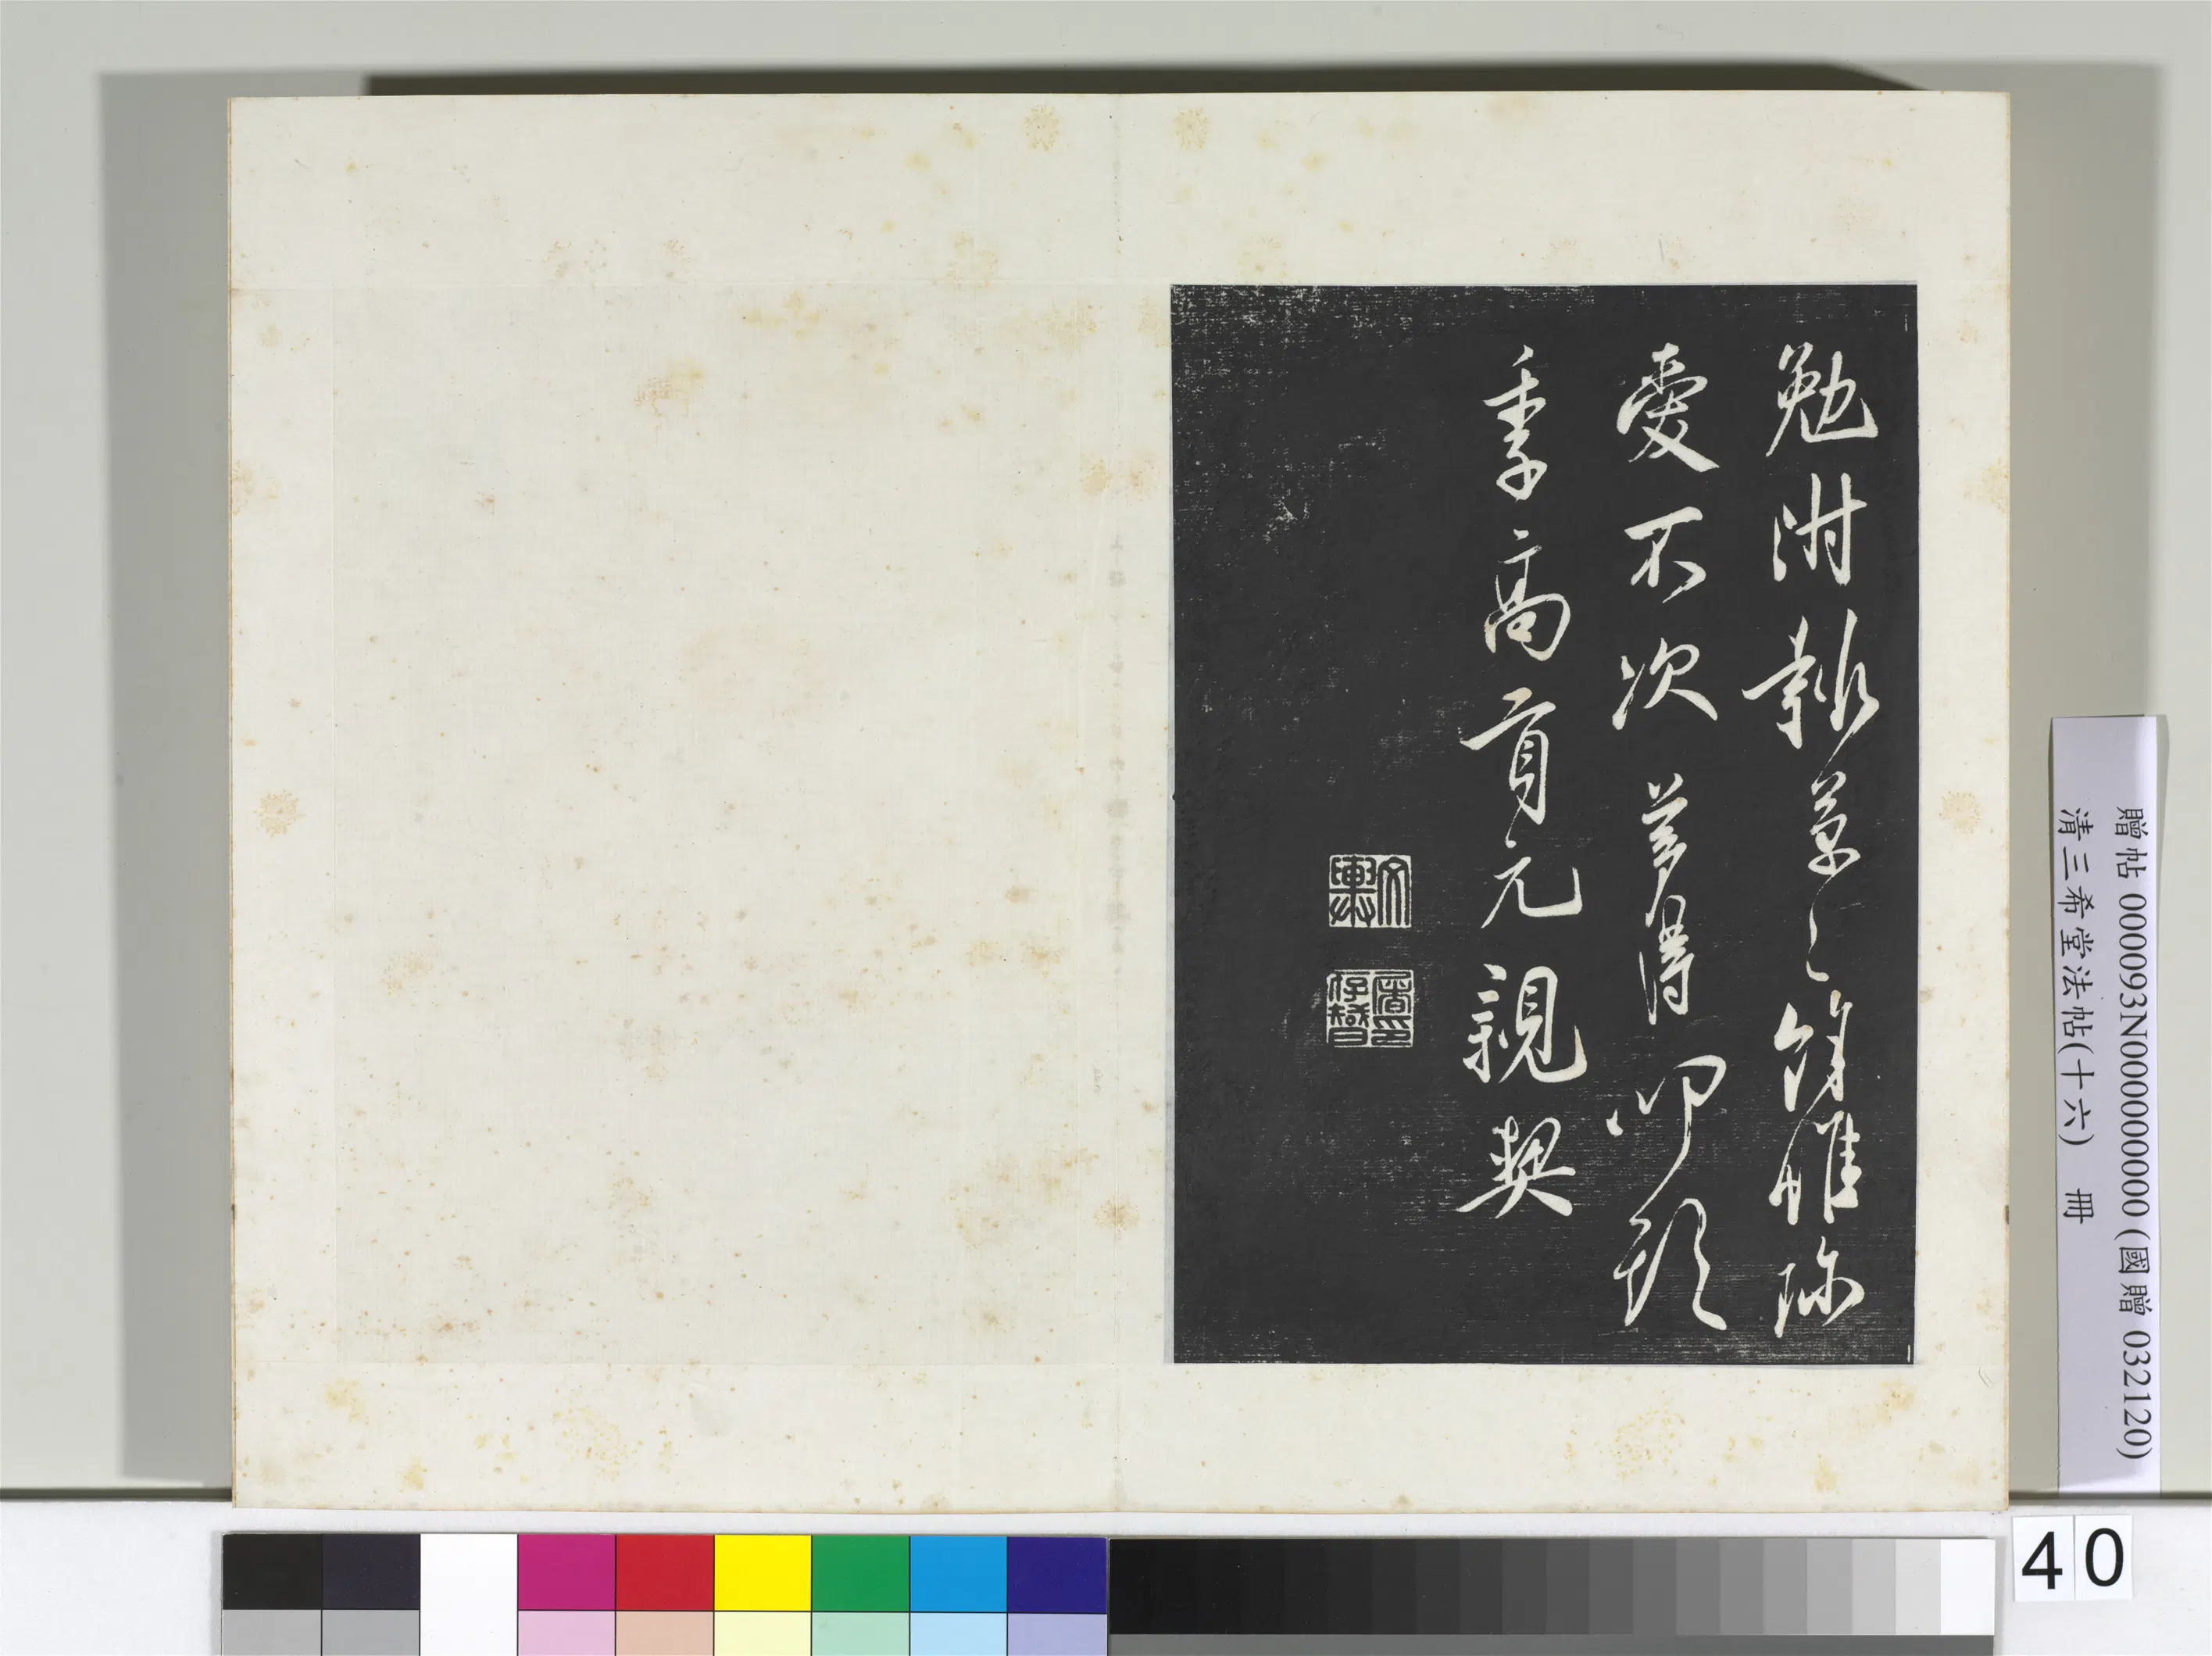 勉附報草〻餘惟珎
愛不次 夢得叩頭
季高貢元親契
贈帖 000093N000000000 (國贈 032120)
清三希堂法帖(十六) 冊
40